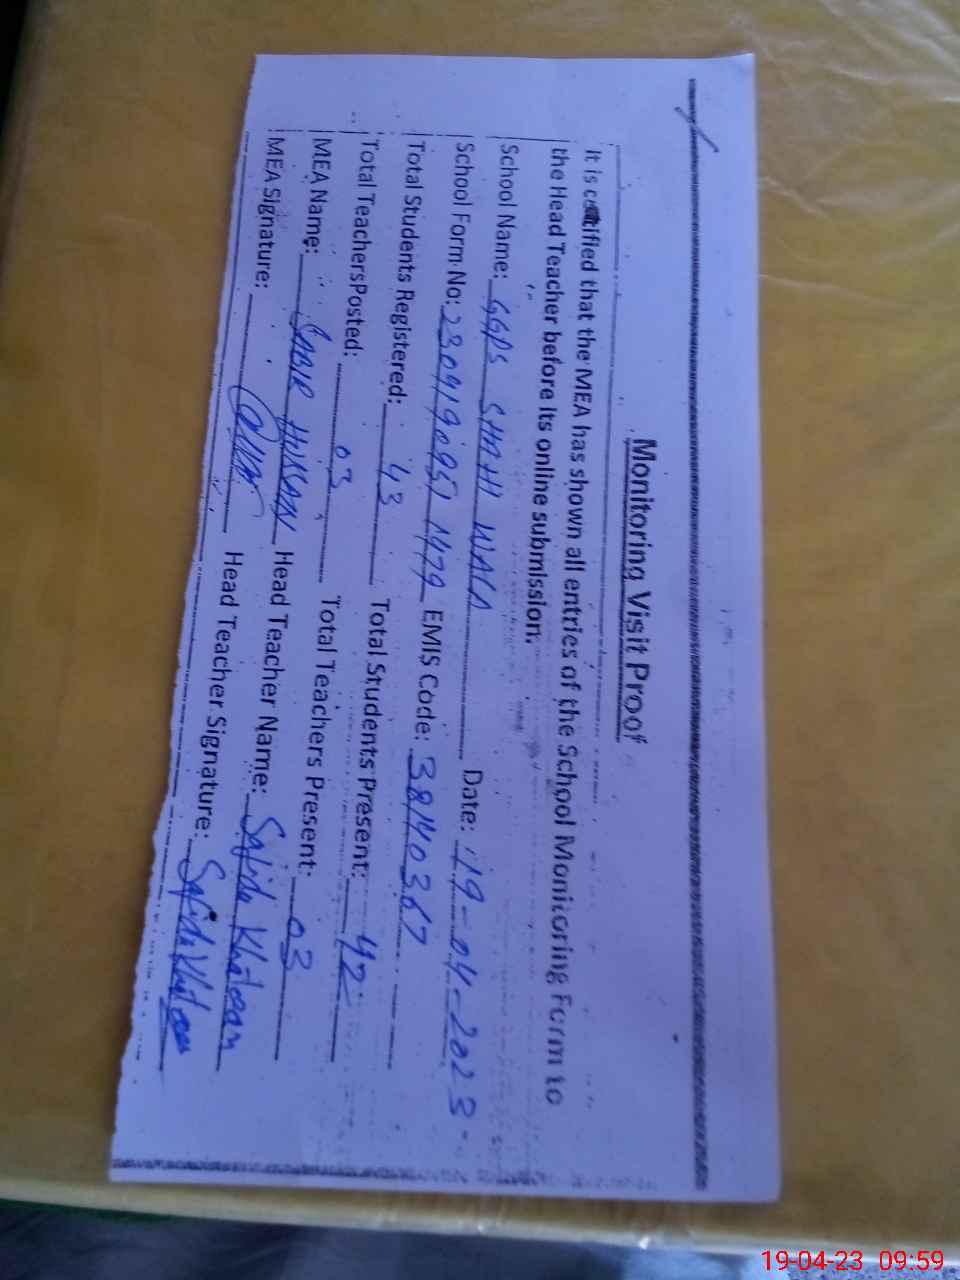 Monitoring Visit Proof
It is certified that the MEA has shown all entries of the School Monitoring Form to
the Head Teacher before its online submission.
School Name: GGPS SHAH WALA Date: 19-04-2023
School Form No: 2309190951479 EMIS Code: 38140367
Total Students Registered: 43 Total Students Present: 42
Total TeachersPosted: 03 Total Teachers Present: 03
MEA Name: SABIR HUSSAIN Head Teacher Name: Sajida Khatoon
MEA Signature: Head Teacher Signature: Sajida Khatoon
19-04-23 09:59